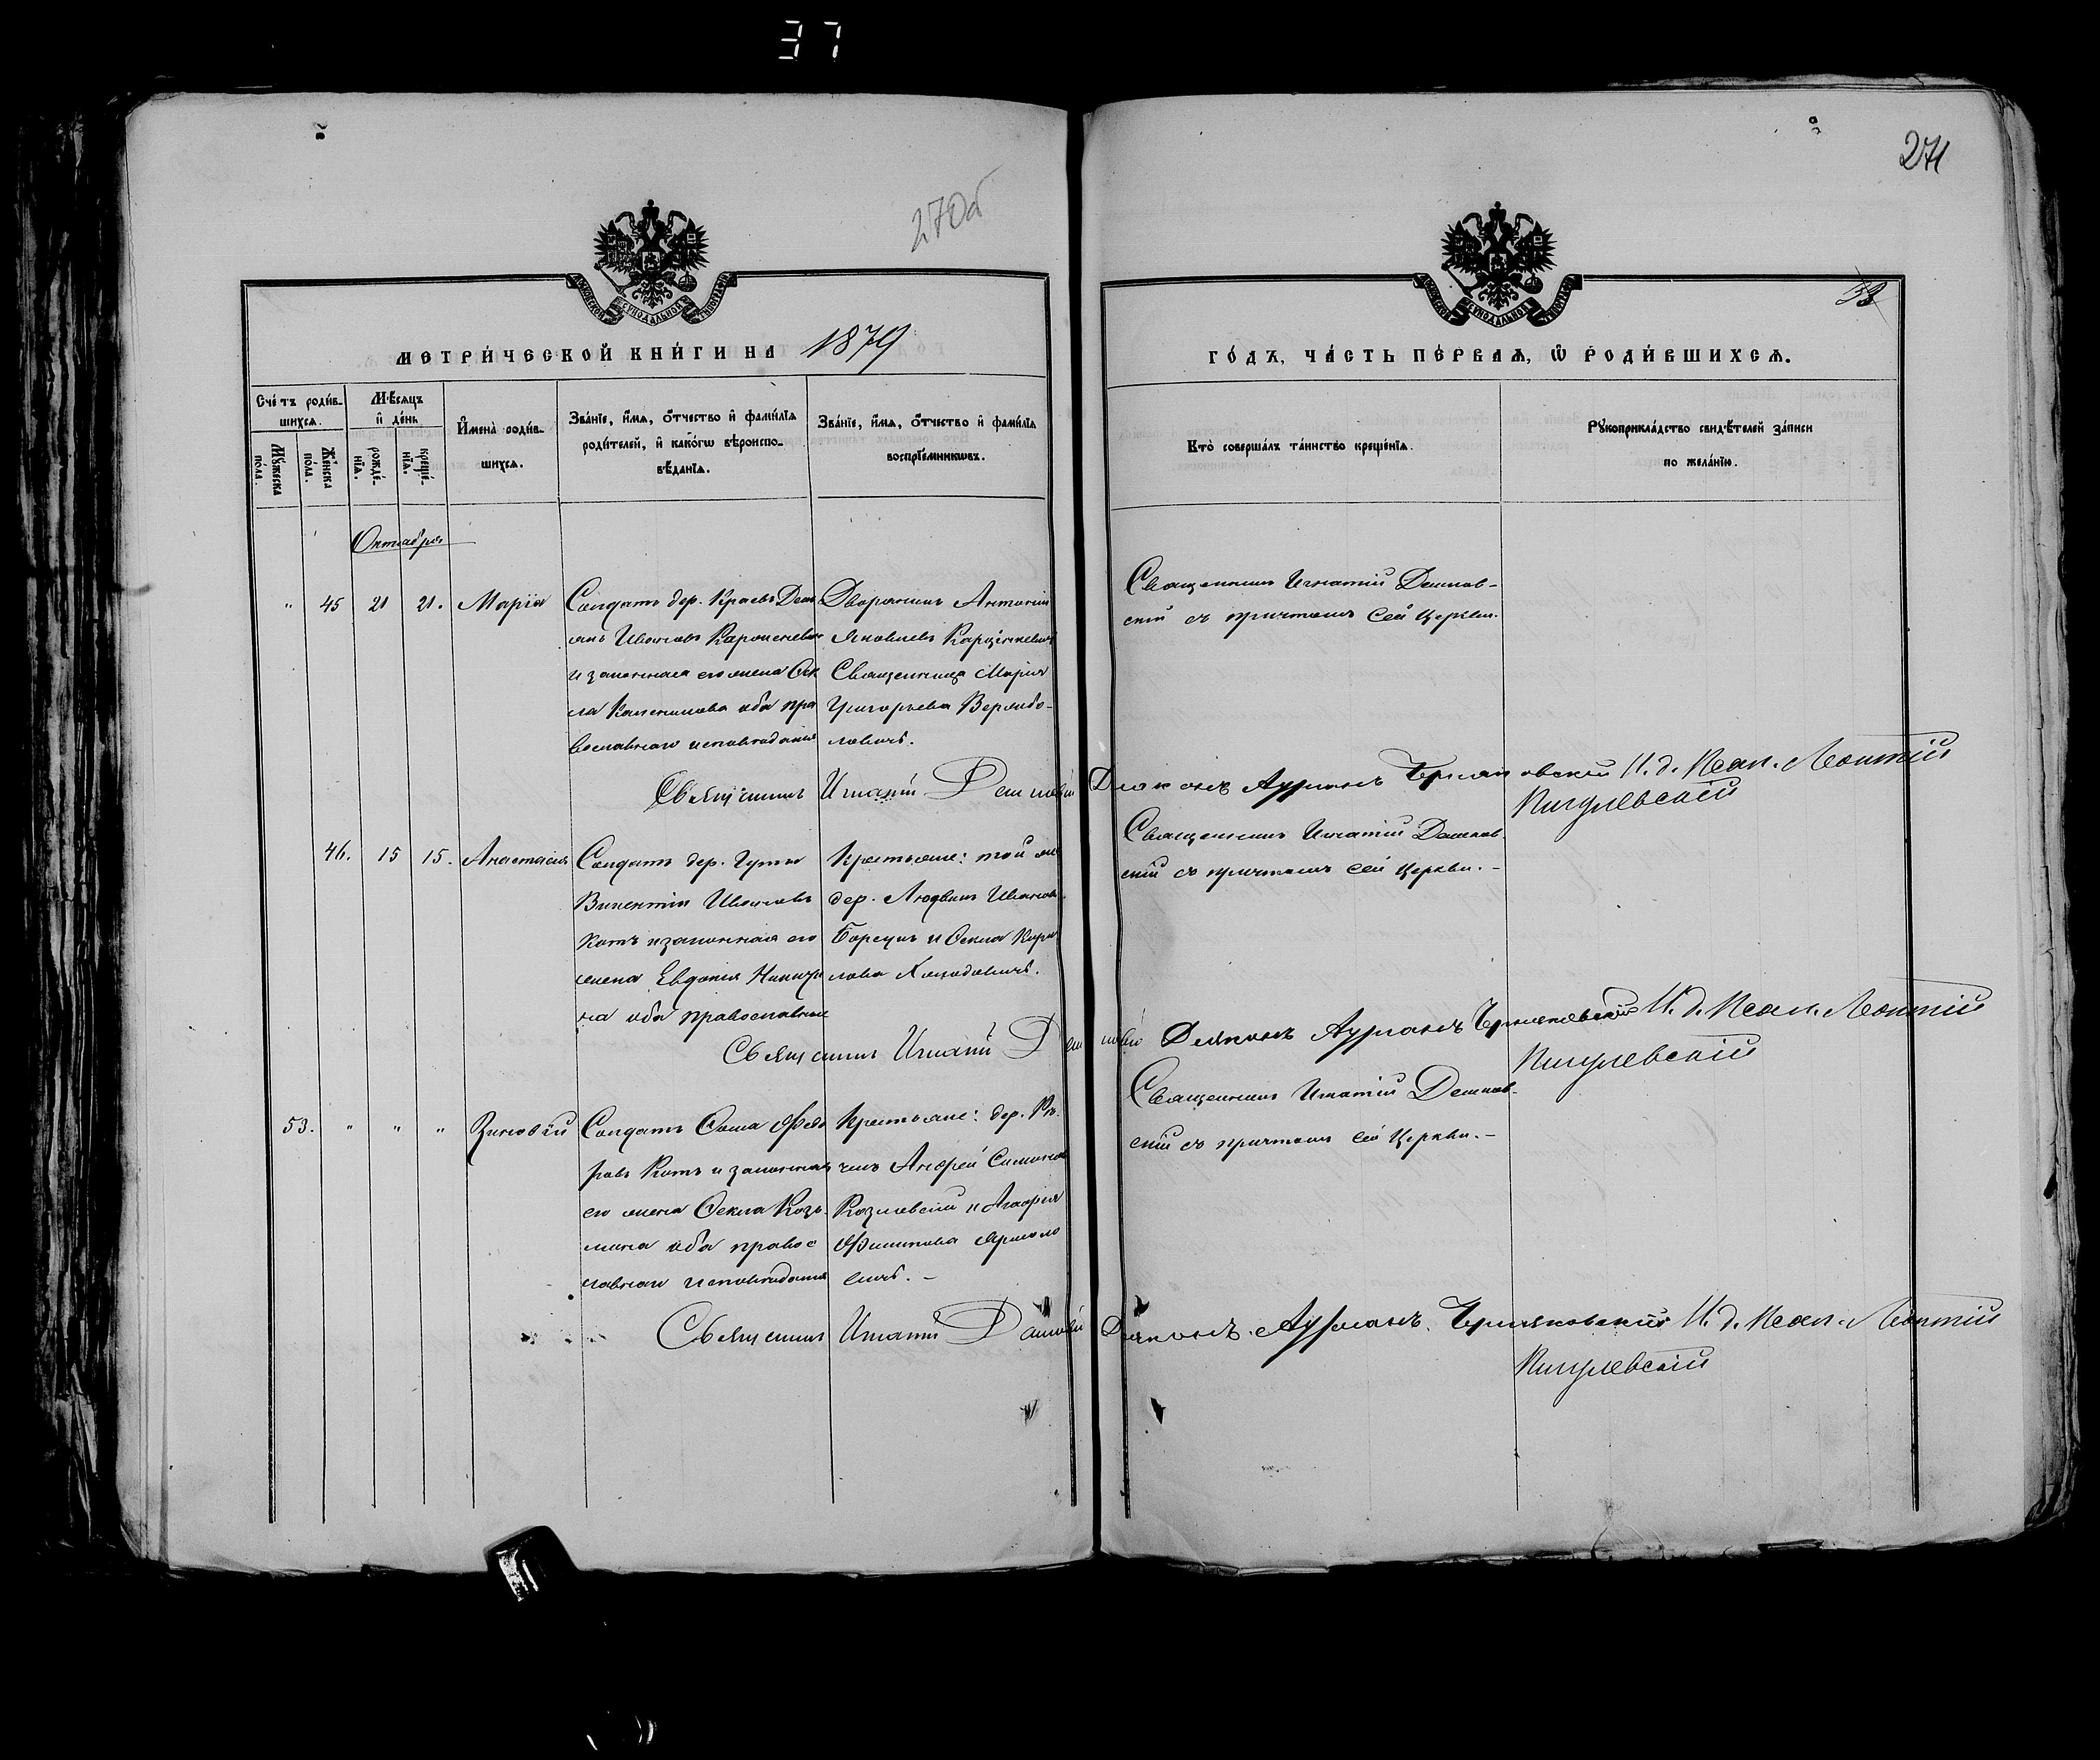 37
270об
271
33
МЕТРИ́ЧЕСКОЙ КНИ́ГИ НА 1879
ГО́ДЪ, ЧА́СТЬ ПЕ́РВАѦ, Ѡ҆ РОДИ́ВШИХСѦ.
Сче́тъ роди́в-
шихсѧ.
Мѣ́сѧцъ
и҆ де́нь
Мꙋ́жеска
по́ла.
Же́нска
по́ла.
рожде́-
нїѧ.
креще́-
нїѧ.
И҆мена̀ роди́в-
шихсѧ.
Зва́нїе, и҆́мѧ, ѻ҆́тчество и҆ фами́лїѧ
роди́телей, и҆ како́гѡ вѣроиспо-
вѣ́данїѧ.
Зва́нїе, и҆́мѧ, ѻ҆́тчество и҆ фами́лїѧ
воспрїе́мникѡвъ.
Кто̀ соверша́лъ та́инство креще́нїѧ.
Рꙋкоприкла́дство свидѣ́телей за́писи
по жела́нїю.
Октября
" 45 21 21. Марія
Солдатъ дер. Краевъ Демь
янъ Ивановъ
и законная его жена Оек
ла обa пра
вославнаго исповѣданія
Дворянинъ Антоній
Яковлевъ
Священница Марія
Григорьева Вержбо-
ловичъ.
Священникъ Игнатій Дашков-
скій съ причтомъ сей Церкви.
Священникъ Игнатій Дашковскій Діаконъ Черняковскій И. д. Псал. Леонтій
Пигулевскій
46. 15 15. Анастасія
Солдатъ дер. Гуты
Викентій Ивановъ
Котъ и законная его
жена Евдокія Никити
на оба православные
Крестьяне: той же
дер. Людвикъ Иванов
и Оекла Кири
лова
Священникъ Игнатій Дашков
скій съ причтомъ сей Церкви. -
Священникъ Игнатій Дашковскій Діаконъ Черняковскій И. д. Псал. Леонтій
Пигулевскій
53. " " " Зиновій
Солдатъ Ѳома Федо
ровъ Котъ и законная
его жена Оекла Козь-
мина оба правос
лавнаго исповѣданія
Крестьяне: дер.
Андрей Симонов
Козловскій и Агафія
Филипова Ярмоло
вичъ. -
Священникъ Игнатій Дашков-
скій съ причтомъ сей Церкви. -
Священникъ Игнатій Дашковскій Діаконъ Черняковскій И. д. Псал. Леонтій
Пигулевскій